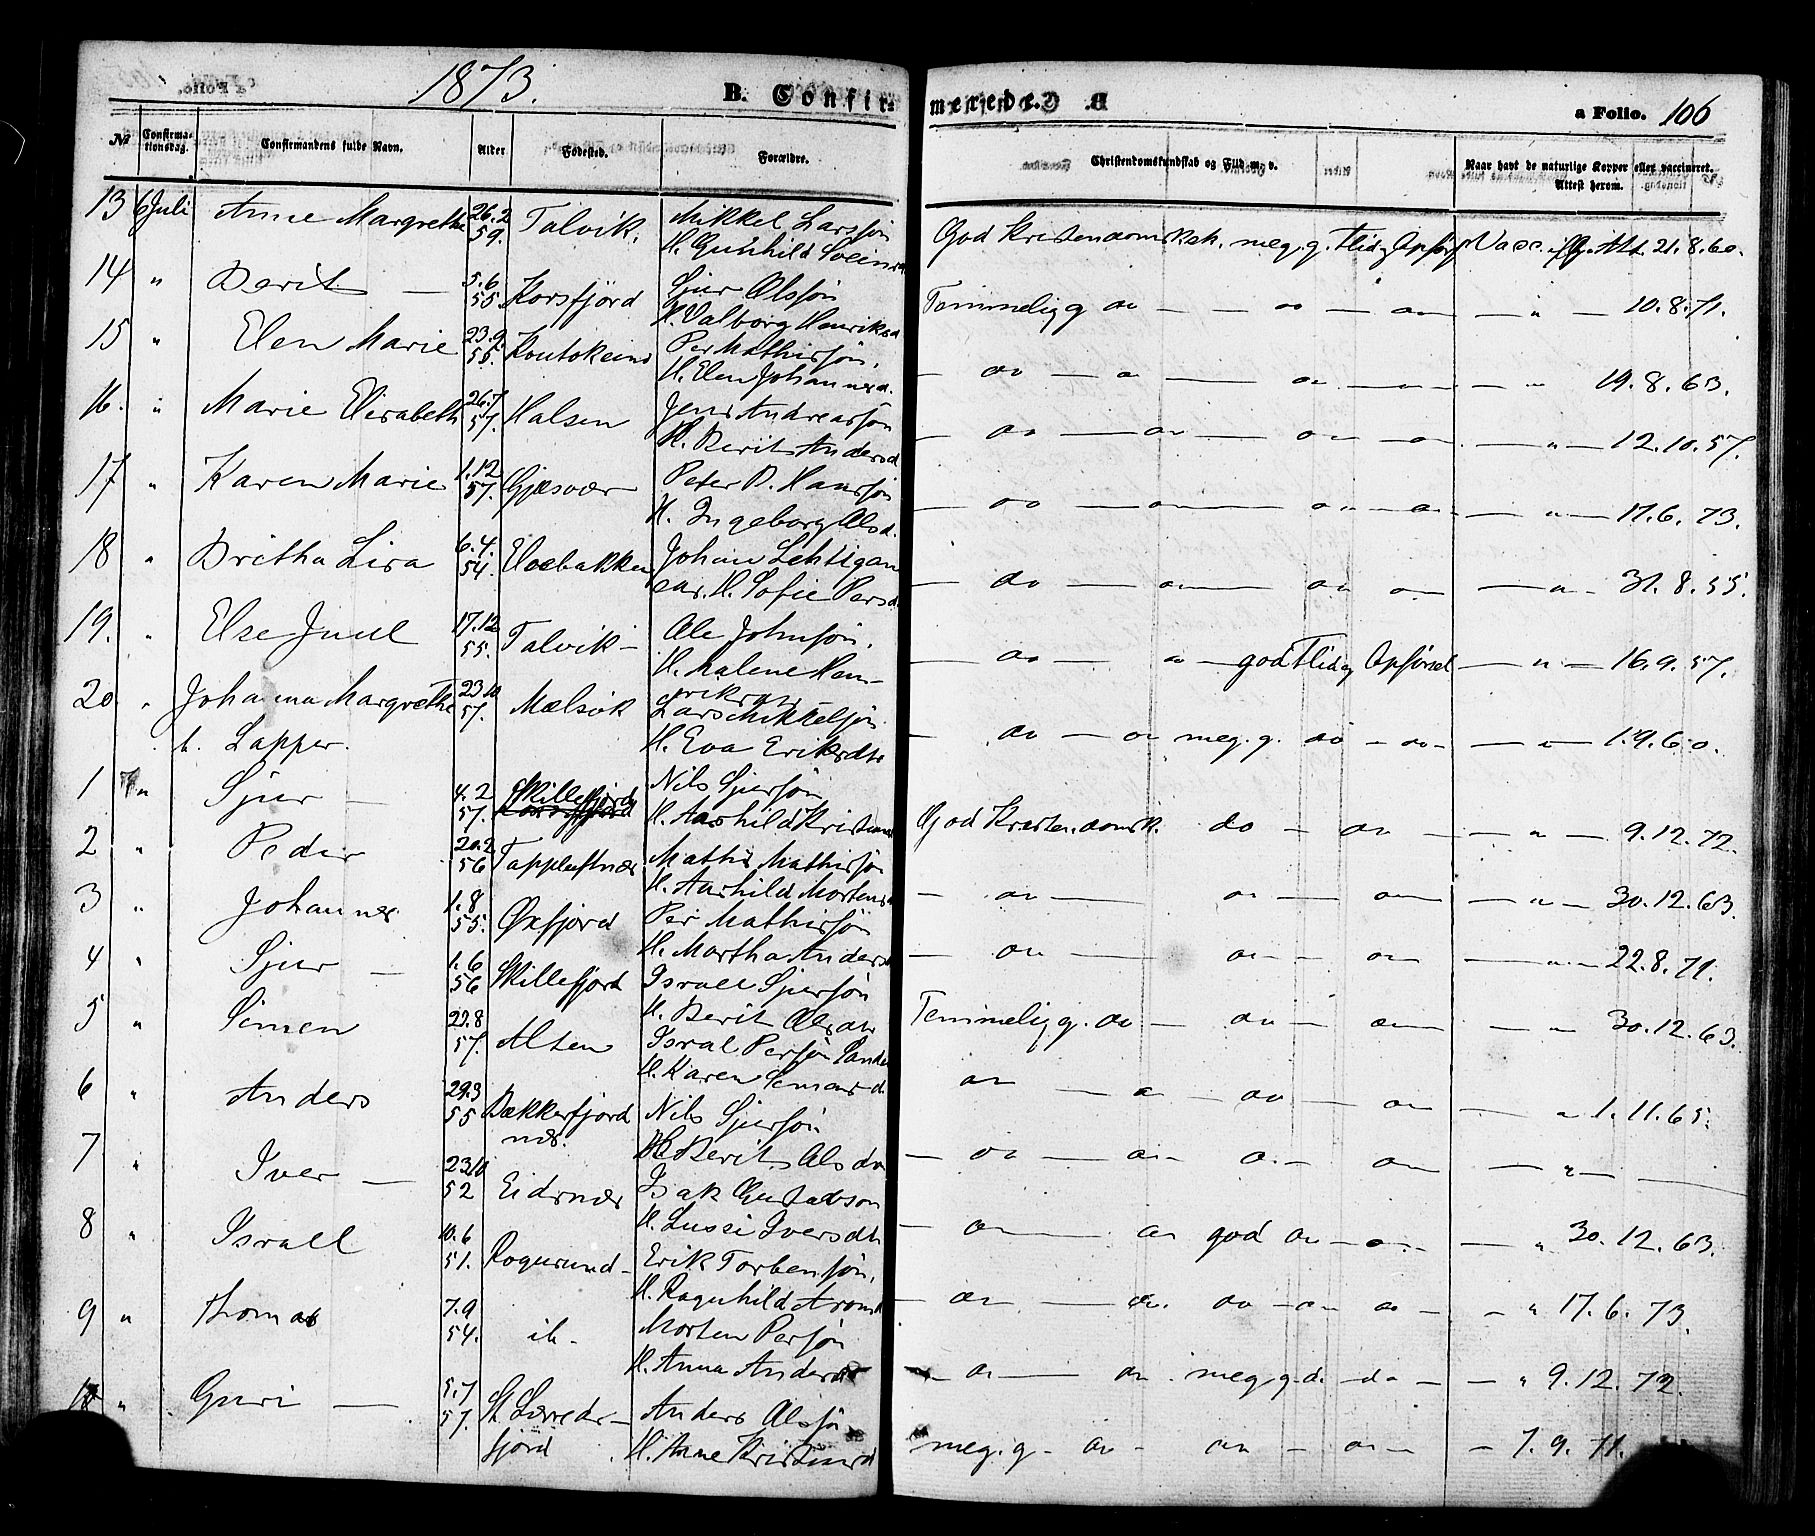 1873.
B. Confir-
merede.
a Folio. 106
№ Confirmationsdag. Confirmandens fulde Navn. Alder Fødested. Forældre. Christendomskundskab og Flid m. v. Naar havt de naturlige Kopper eller vaccineret. Attest herom.
13 6 Juli Anne Margrethe 26.2 59. Talvik. Mikkel Larssøn God Kristendomsksk. meg. g. Flid g Opførs Vacc. Att. 21.8.60.
H. Gunhild Sveinsd
14 " Berit — 5.6 55. Korsfjord Sjur Olssøn Temmelig g do — — do — do — " — 10.8.71.
H. Valborg Henriksd
15 " Elen Marie 23.9 55. Koutokeino Per Mathissøn,
H. Elen Johannesd. — do — — — — " 19.8.63.
16. " Marie Elisabeth 26.7 57. Halsen Jens Andreassøn
H. Berit Andersd — do — do — do — do — " — 12.10.57.
17 " Karen Marie 1.12 57. Gjæsvær — Peter P. Hanssøn
H. Ingeborg Olsd. — do — do — do — do — " — 17.6.73.
18 " Britha Lisa 6.4. 54. Elvebakken Johan Lehtigan
ear. H. Sofie Persd. — do — do — do do — — " — 31.8.55.
19. " Else Juul 17.12 55. Talvik — Ole Johnsøn,
H. Malene Hen- — do — do — god Flid og Opførsel — " — 16.9.57.
riksen
20. " Johanna Margrethe 23.10 57. Mælsvik Lars Mikkelsjøn
b. Lapper. H. Eva Eriksdtr — do — do meg. g. do — do — — " — 1.9.60.
1 " Sjur — 4.2 57. Skillefjord Nils Sjursøn
H. Aashild Kristens God Kristendomsk. do — do — — " — 9.12.72.
2 " Peder 20.2 56 Tappluftnæs Mathis Mathissøn
H. Aashild Mortens — do — do — do — " — 30.12.63.
3 " Johannes 1.8 55. Øxfjord Per Mathissøn
H. Martha Anders — do — do — do — " — 22.8.71.
4 " Sjur — 1.6 56 Skillefjord Israel Sjursøn
H. Berit Olsdtr Temmelig g. do — do — do — " 30.12.63.
5 " Simen 29.8 57. Alten Isral Persøn
H. Karen do — — do — do — " 1.11.65.
6 " Anders 29.3 55 Bekkerfjord Nils Sjursøn
næs. H. Berit Olsdtr — do — do — do — do — " —
7 " Iver — 23.10 52 Eidsnæs Isak Gustavson
H. Lussi Iversdtr — do — do god do — do — — " 30.12.63.
8 " Israel 10.6 51. Rognsund — Erik Torbensøn,
H. Ragnhild — do — do do — do do — — " 17.6.73.
9 " Thomas 7.9 54. ib. Morten Persøn
H. Anna Andersd — do — do meg. g. do — do — — " 9.12.72.
10 " Guri — 5.7 57. St. Lerreds- Anders Olssøn
fjord H. Anne Kristensd meg. g — do — do — do — — 7.9.71.